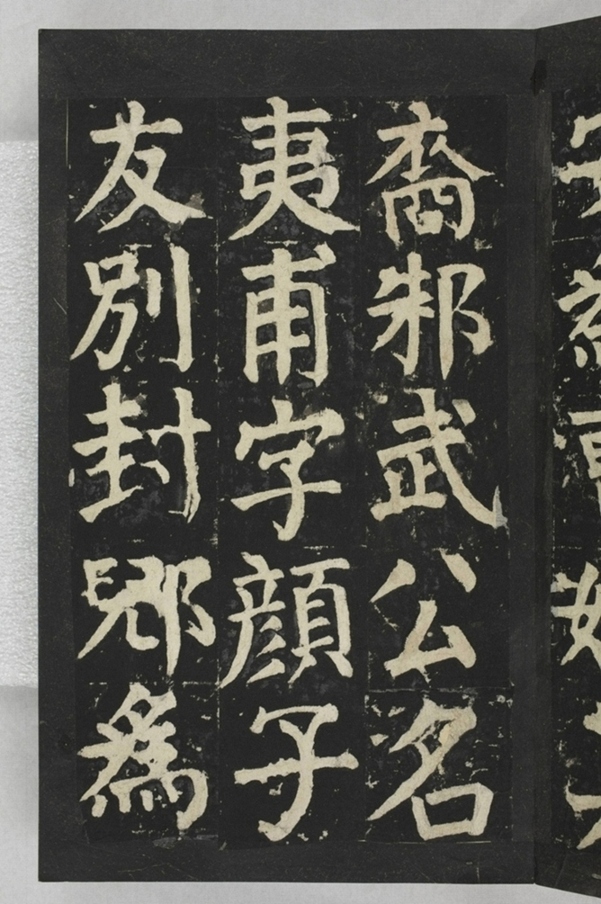 裔邾武公名
夷甫字顔子
友別封郳爲